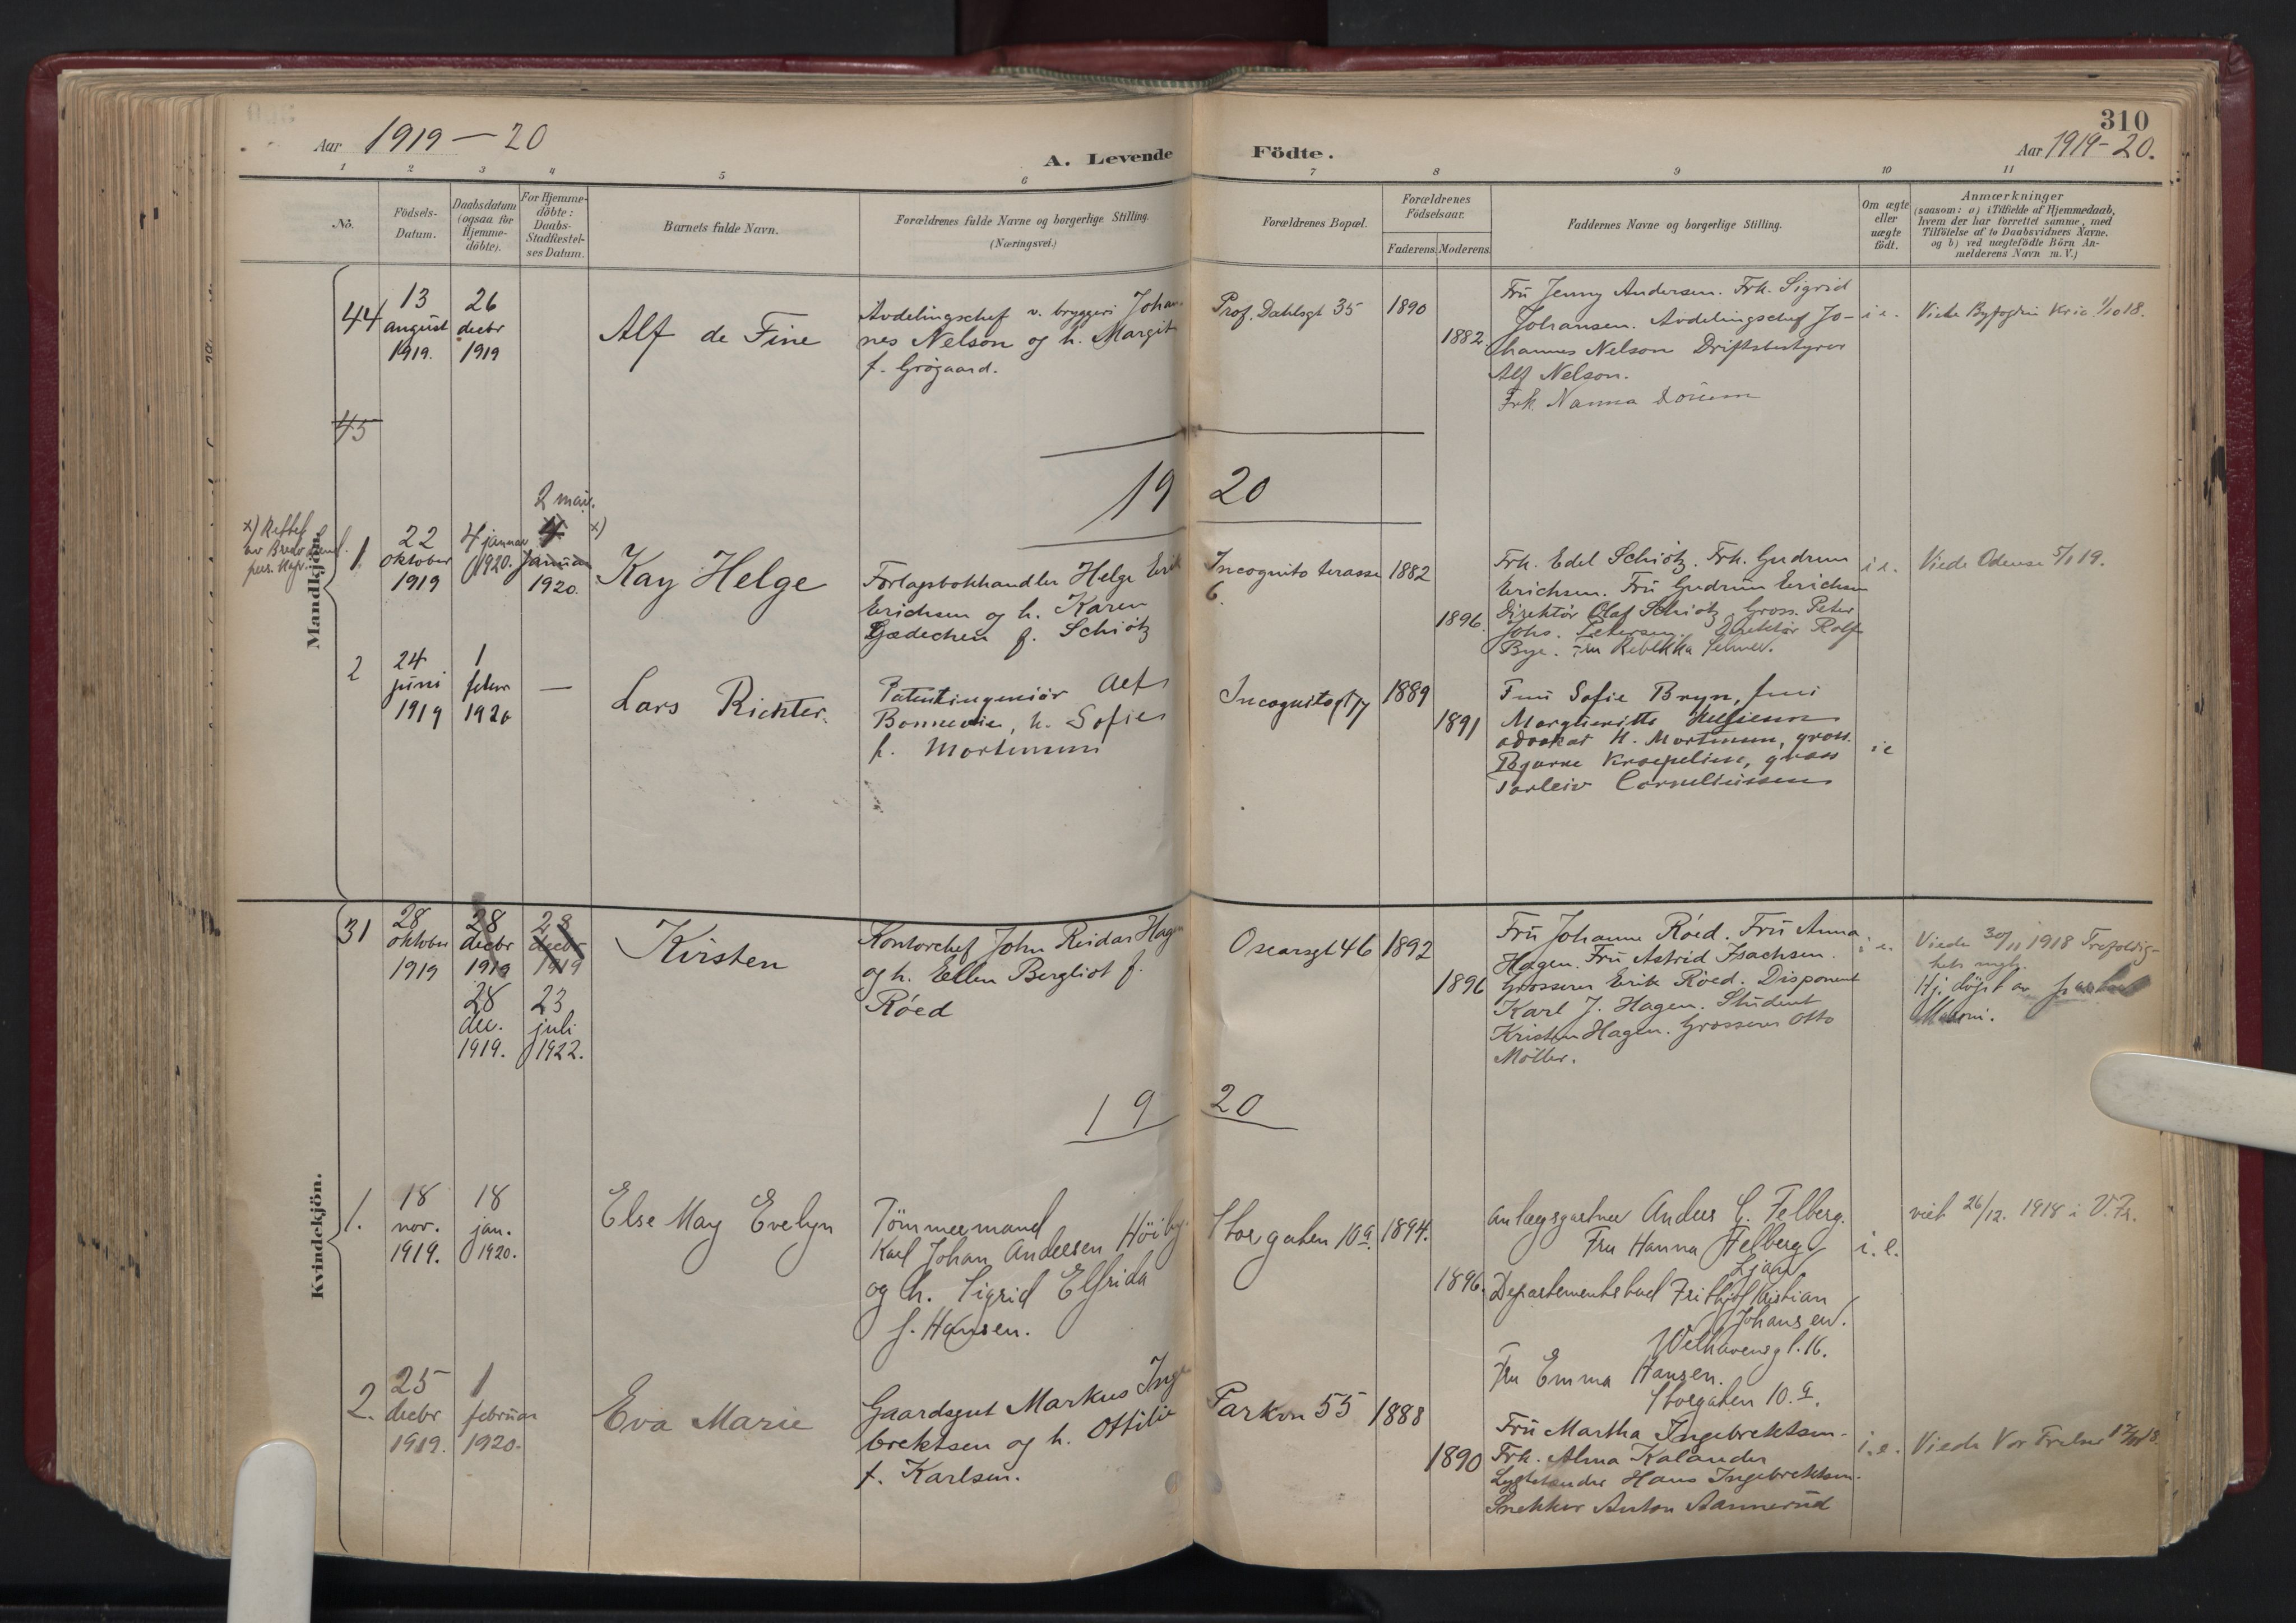 310
Aar 1919-20
A. Levende Fødte.
Aar 1919-20.
1 2 3 4 5 6 7 8 9 10 11
No.
Födsels-
Datum.
Daabsdatum
(ogsaa for
Hjemme-
döbte).
For Hjemme-
döbte:
Daabs-
Stadfæstel-
ses Datum.
Barnets fulde Navn.
Forældrenes fulde Navne og borgerlige Stilling.
(Næringsvei.)
Forældrenes Bopæl.
Forældrenes
Födselsaar.
Faderens. Moderens.
Faddernes Navne og borgerlige Stilling.
Om ægte
eller
uægte
födt.
Anmærkninger
(saasom: a) i Tilfælde af Hjemmedaab,
hvem der har forrettet samme, med
Tilföielse af to Daabsvidners Navne,
og b) ved uægtefödte Börn An-
melderens Navn m. V.)
Mandkjön.
44
13
august
1919.
26
decbr
1919
Alf de Fine
Avdelingschef v. bryggeri Johan-
nes Nelson og h. Margit
f. Grøgaard.
Prof. Dahlsgt 35
1890
1882.
Fru Jenny Andersen. Frk. Sigrid
Johansen. Avdelingschef Jo-
hannes Nelson Driftsbestyrer
Alf Nelson.
Frk. Nanna
i e.
Viede Byfogden Kria. 1/10 18.
45
19 20
x)
1
22
oktober
1919
4 januar
1920.
2 mai.
4
januar
1920.
x)
Kay Helge
Forlagsbokhandler Helge Erik
Erichsen og h. Karen
Gædechen f. Schiøtz
Incognito terasse
6.
1882
1896.
Frk. Edel Schiøtz. Frk. Gudrun
Erichsen. Fru Gudrun Erichsen
Direktør Olaf Schiøtz, Gross. Peter
Johs. Petersen. Direktør Rolf
Bye. Fru Rebekka
i e.
Viede Odense 5/1 19.
2
24
juni
1919
1
febr
1920
—
Lars Richter.
Patentingeniør Alf
Bonnevie, h. Sofie
f. Mortensen
Incognitogt 7
1889
1891
Fru Sofie Bryn, fru
Marghuritte
advokat H. Mortensen, gross.
Bjarne Kroepelien, gross
Torleiv Corneliussen
i e
Kvindekjön.
31
28
oktober
1919
28
decbr
1919
28
dec.
1919.
28
decbr
1919
23
juli
1922.
Kirsten
Kontorchef John Reidar Hagen
og h. Ellen Bergliot f.
Røed
Oscarsgt 46
1892
1896
Fru Johanne Røed. Fru Anna
Hagen. Fru Astrid Isachsen.
Grosserer Erik Røed. Disponent
Karl J. Hagen. Student
Kristen Hagen. Grosserer Otto
Møller.
i e.
Viede 30/11 1918 Trefoldig-
hets mgh.
Hj. døpt av
19 20
1.
18
nov.
1919.
18
jan.
1920.
Else May Evelyn
Tömmermand
Karl Johan Andersen Höiby
og h. Sigrid Elfrida
f. Hansen.
Storgaten 10 a.
1894.
1896.
Anlægsgartner Anders C. Felberg.
Fru Hanna Felberg
Ljan
Departementsbud Frithjof Kristian
Johansen.
Welhavensg t. 16.
Fru Emma Hansen.
Storgaten 10. a.
i. e.
viet 26/12. 1918 i V. Fr.
2.
25
decbr
1919.
1
februar
1920.
Eva Marie
Gaardsgut Markus Inge
brektsen og h. Ottilie
f. Karlsen.
Parkvn 55
1888
1890
Fru Martha Ingebrektsen.
Frk. Alma Kalander
Lygtetænder Hans Ingebrektsen.
Snekker Anton Aannerud
i. e.
Viede Vor Frelser